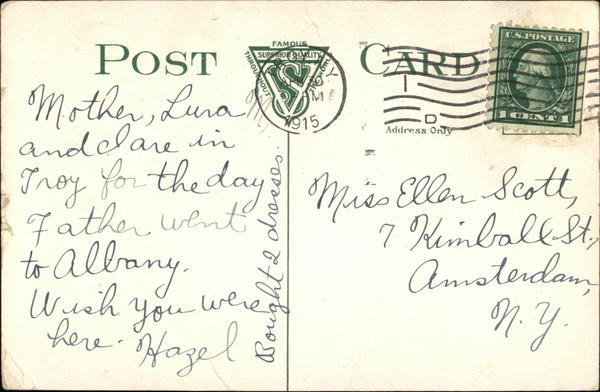 POST CARD
FAMOUS
SUPERIOR QUALITY
THROUGHOUT
Y
M
1915
D
Address Only
U.S. POSTAGE
1 CENT 1
Mother, Lura M,
and Clare in
Troy for the day
Father went
to Albany.
Wish you were
here. Hazel
Bought 2 dresses.
Miss Ellen Scott,
7 Kimball St.,
Amsterdam,
N.Y.